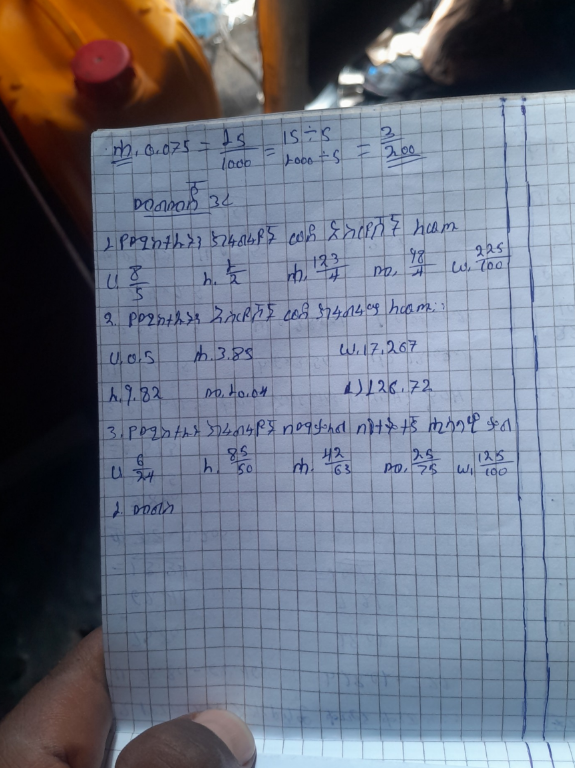 ሐ. 0.075 = 75/1000 = 15÷5/1000÷5 = 3/200
መልመጃ 3ሪ
1. የሚከተሉትን ክፍልፋዮች ወደ አስርዮሽ ለውጡ
ሀ. 8/5 ለ. 1/2 ሐ. 123/4 መ. 48/4 ሠ. 225/100
2. የሚከተሉትን አስርዮሽ ወደ ክፍልፋይ ለውጡ።
ሀ. 0.5 ሐ. 3.85 ሠ. 17.267
ለ. 9.82 መ. 10.04 ረ) 126.72
3. የሚከተሉት ክፍልፋዮች
ሀ 6/24 ለ. 85/50 ሐ. 42/63 መ. 25/75 ሠ. 125/100
1. መልስ